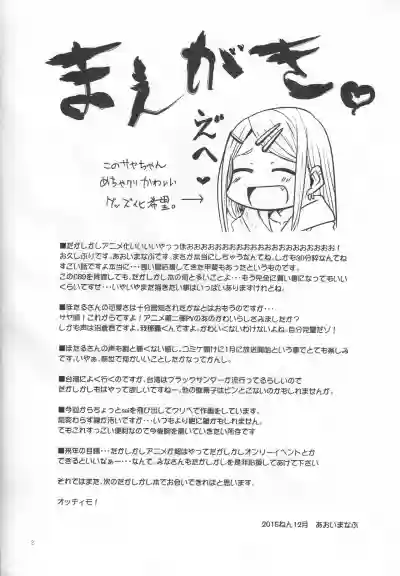 まえがき。♥
えへ♥
このサヤちゃん
めちゃクソかわいい
グッズ化希望。→
■だがしかしアニメ化いいいいやっっほおおおおおおおおおおおおおおおおおおおおお！
お久しぶりです。あおいまなぶです。まさか本当にしちゃうなんてね。しかも30分枠なんてね
すごい話ですよ本当に・・・買い続け応援してきた甲斐もあったというものです。
くらいですぜ・・・いやいやまだ描きたい事はいっぱいありますけれどね。
■ほたるさんの可愛さは十分認知されたかなとはおもうのですが・・・
サヤ師！これからですよ！アニメ第二弾PVのあのかわいらしさみましたか？
しかも声は沼倉さんですよ。かわいくないわけないよね。自分完璧だゾ！
■ほたるさんの声も割と悪くない感じ。コミケ開けに1月に放送開始という事でとても楽しみ
です。いやぁ。
■台湾によく行くのですが、台湾はブラックサンダーが流行ってるらしいので
だがしかしもはやってほしいですねー。他の駄菓子はピンとこないのかもしれませんが。
■今回からちょっとsaiを飛び出してクリペで作画をしています。
相変わらず線が汚いですが・・・いつもより更に雑かもしれません。
でもこれすっごい便利なので今後腕を磨いていきたい所存です
■来年の目標・・・だがしかしアニメが始まってだがしかしオンリーイベントとか
できるといいなぁー・・・なんて、みなさんもだがしかしを是非応援してあげて下さい
それではまた、次のだがしかし本でお会いできればと思います。
オッティモ！
2015ねん12月　あおいまなぶ